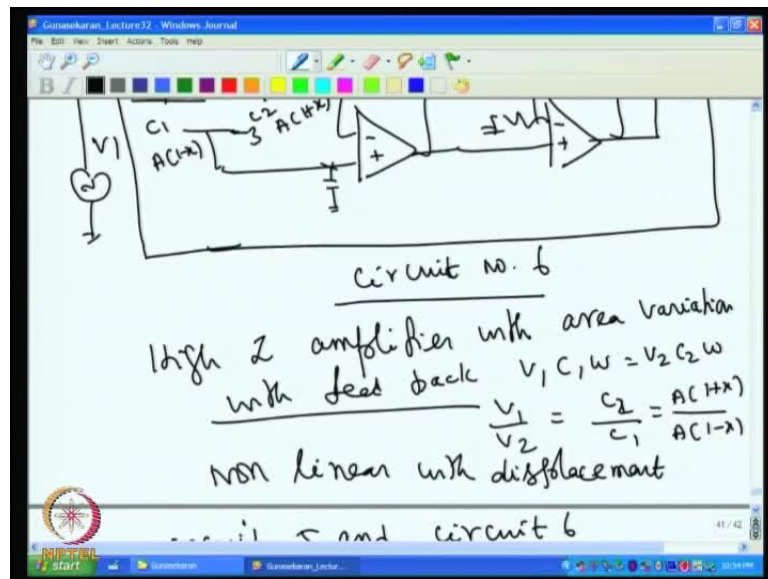 Gunasekaran_Lecture32 - Windows Journal
File Edit View Insert Actions Tools Help
B I
V1
C1
A(1-x)
C2
A(1+x)
-
+
-
+
Circuit No. 6
High Z amplifier with area variation
with feed back V1 C1 W = V2 C2 W
V1/V2 = C2/C1 = A(1+x)/A(1-x)
Non linear with displacement
and circuit 6
41 / 42
NPTEL
start Gunasekaran Gunasekaran_Lectur... 10:59 PM